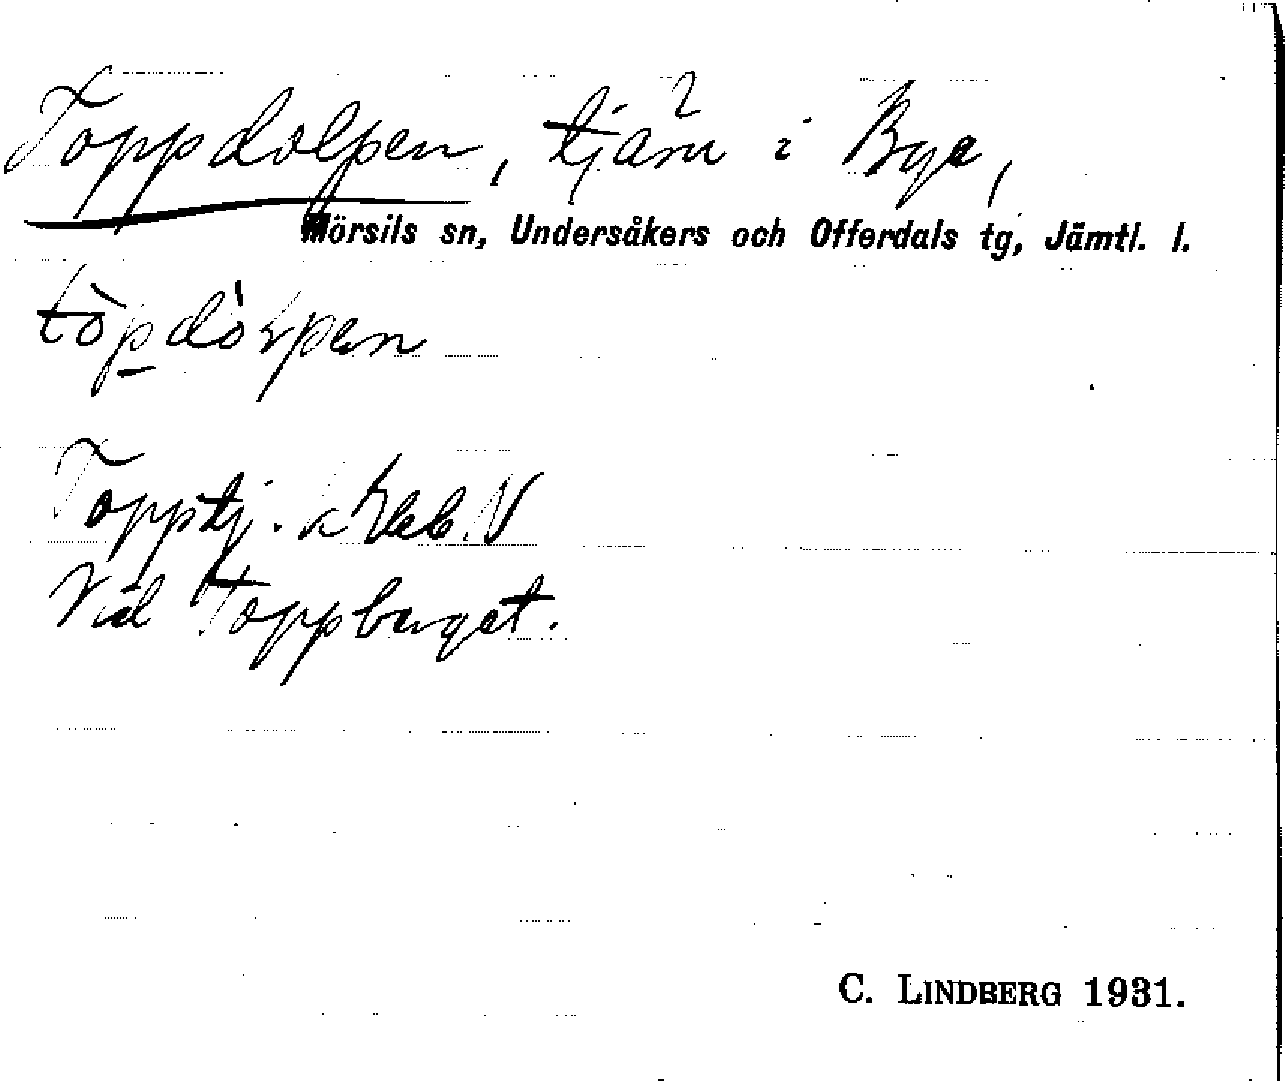 Toppdolpen, tjärn i Bye,
Mörsils sn, Undersåkers och Offerdals tg, Jämtl. l.
tòpdòɽpen
Topptj.
Vid Toppberget.
C. LINDBERG 1931.